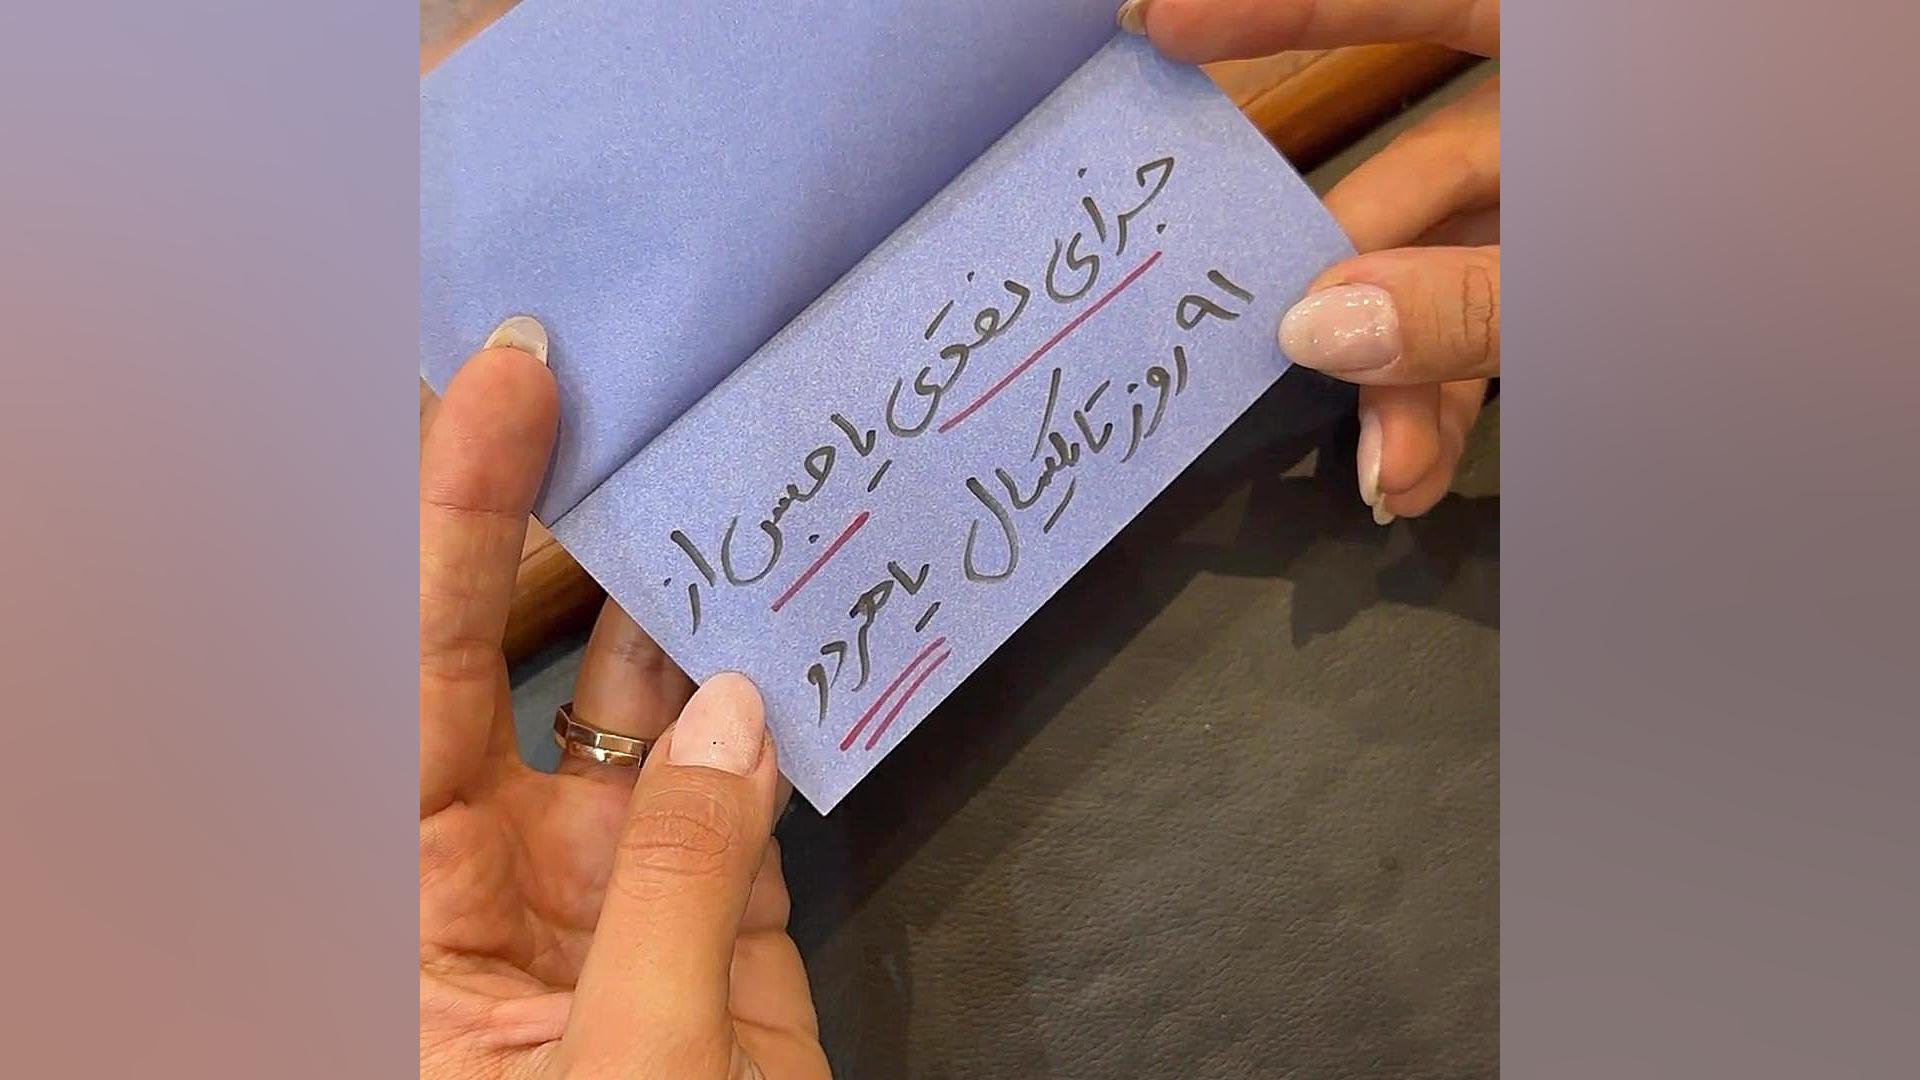 جزای نقدی یا حبس از
۹۱ روز تا یکسال یا هر دو